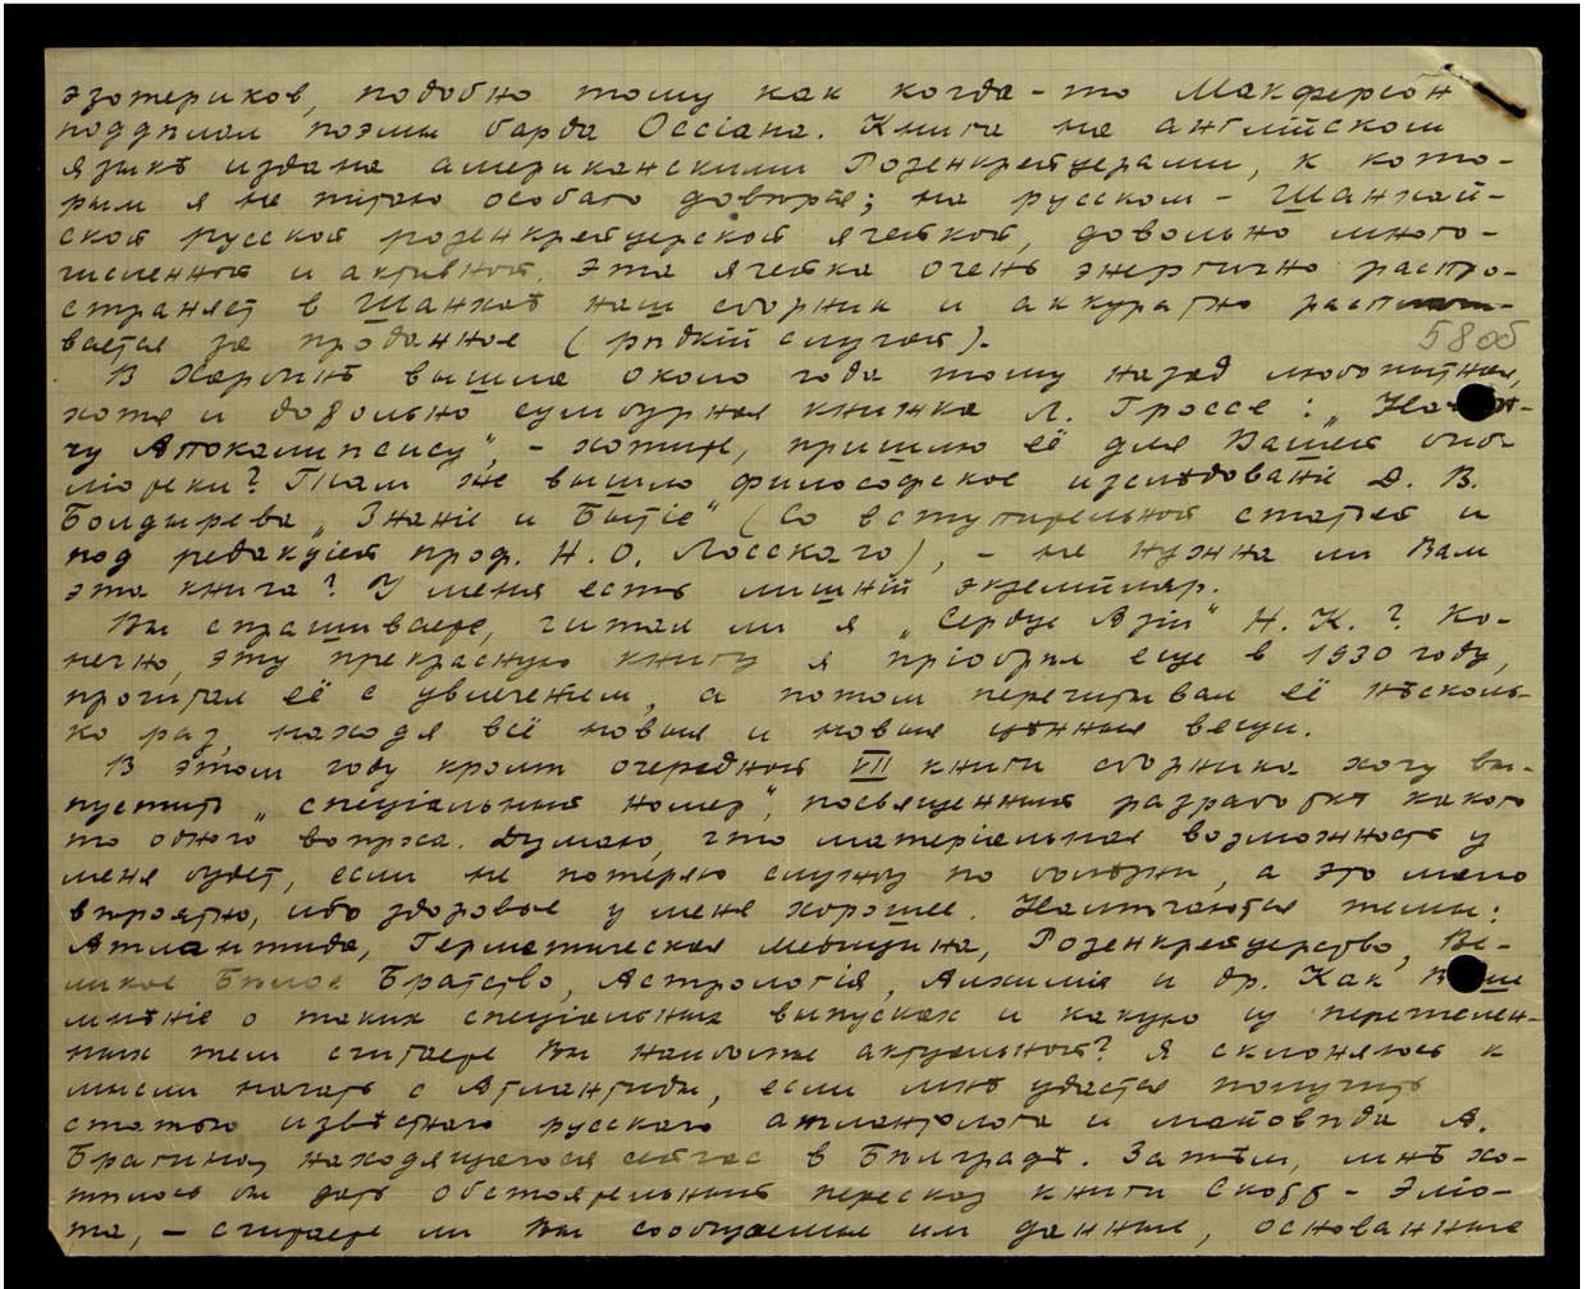 эзотериков, подобно тому как когда-то Макферсон
поддѣлал поэмы барда Оссіана. Книга на англійском
языкѣ издана американскими Розенкрейцерами, к кото-
рым я не питаю особаго довѣрія; на русском - Шанхай-
ской русской розенкрейцерской ячейкой, довольно много-
численной и активной. Эта ячейка очень энергично распро-
страняет в Шанхаѣ наш сборник и аккуратно распла
вается за проданное (рѣдкій случай).
58об
В Харбинѣ вышла около года тому назад любопытная,
хотя и довольно сумбурная книжка Л. Гроссе: „
чу Апокалипсису“, - хотите, пришлю её для Вашей биб-
ліотеки? Там же вышло философское изслѣдованіе Д. В.
Болдырева „Знаніе и Бытіе“ (со вступительной статьей и
под редакціей проф. Н. О. Лосскаго), - не нужна ли Вам
эта книга? У меня есть лишній экземпляр.
Вы спрашиваете, читал ли я „Сердце Азіи“ Н. К.? Ко-
нечно, эту прекрасную книгу я пріобрѣл еще в 1930 году,
прочитал её с увлеченіем, а потом перечитывал её нѣсколь-
ко раз, находя всё новыя и новыя цѣнныя вещи.
В этом году кромѣ очередной VII книги сборника хочу вы-
пустить „спеціальный номер“, посвященный разработкѣ какого
то одного вопроса. Думаю, что матеріальная возможность у
меня будет, если не потеряю службу по болѣзни, а это мало
вѣроятно, ибо здоровье у меня хорошее. Намѣчаются темы:
Атлантида, Герметическая медицина, Розенкрейцерство, Ве-
ликое Бѣлое Братство, Астрологія, Алхимія и др. Как Ваше
мнѣніе о таких спеціальных выпусках и какую из перечислен-
ных тем считаете Вы наиболѣе актуальной? Я склоняюсь к
мысли начать с Атлантиды, если мнѣ удастся получить
статью извѣстнаго русскаго атлантолога и майовѣда А.
Брагина, находящегося сейчас в Бѣлградѣ. Затѣм, мнѣ хо-
тѣлось бы дать обстоятельный пересказ книги Скотт-Эліо-
та, - считаете ли Вы сообщаемые им данные, основанные